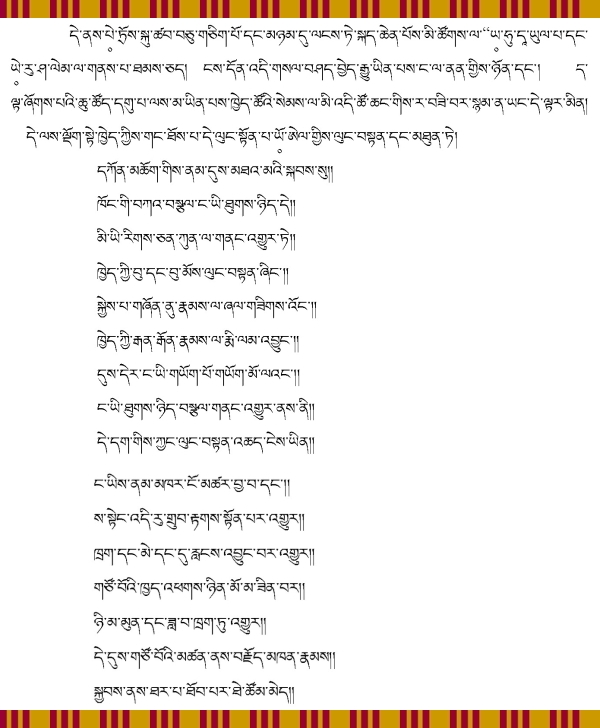 དེ་ནས་པེ་ཏྲོས་སྐུ་ཚབ་བཅུ་གཅིག་པོ་དང་མཉམ་དུ་ལངས་ཏེ་སྐད་ཆེན་པོས་མི་ཚོགས་ལ་“ཡ་ཧུ་དཱ་ཡུལ་པ་དང་
ཡེ་རུ་ཤ་ལེམ་ལ་གནས་པ་ཐམས་ཅད། ངས་དོན་འདི་གསལ་བཤད་བྱེད་རྒྱུ་ཡིན་པས་ང་ལ་ནན་གྱིས་ཉོན་དང་། ད་
ལྟ་ཞོགས་པའི་ཆུ་ཚོད་དགུ་པ་ལས་མ་ཡིན་པས་ཁྱེད་ཚོའི་སེམས་ལ་མི་འདི་ཚོ་ཆང་གིས་ར་བཟི་བར་སྙམ་ན་ཡང་དེ་ལྟར་མིན།
དེ་ལས་ལྡོག་སྟེ་ཁྱེད་ཀྱིས་གང་ཐོས་པ་དེ་ལུང་སྟོན་པ་ཡོ་ཨེལ་གྱིས་ལུང་བསྟན་དང་མཐུན་ཏེ།
དཀོན་མཆོག་གིས་ནམ་དུས་མཐའ་མའི་སྐབས་སུ།།
ཁོང་གི་བཀའ་བསྩལ་ང་ཡི་ཐུགས་ཉིད་དེ།།
མི་ཡི་རིགས་ཅན་ཀུན་ལ་གནང་འགྱུར་ཏེ།།
ཁྱེད་ཀྱི་བུ་དང་བུ་མོས་ལུང་བསྟན་ཞིང་།།
སྐྱེས་པ་གཞོན་ནུ་རྣམས་ལ་ཞལ་གཟིགས་འོང་།།
ཁྱེད་ཀྱི་རྒན་རྒོན་རྣམས་ལ་རྨི་ལམ་འབྱུང་།།
དུས་དེར་ང་ཡི་གཡོག་པོ་གཡོག་མོ་ལའང་།།
ང་ཡི་ཐུགས་ཉིད་བསྩལ་གནང་འགྱུར་ནས་ནི།།
དེ་དག་གིས་ཀྱང་ལུང་བསྟན་འཆད་ངེས་ཡིན།།
ང་ཡིས་ནམ་མཁར་ངོ་མཚར་བྱ་བ་དང་།།
ས་སྟེང་འདི་རུ་གྲུབ་རྟགས་སྟོན་པར་འགྱུར།།
ཁྲག་དང་མེ་དང་དུ་རླངས་འབྱུང་བར་འགྱུར།།
གཙོ་བོའི་ཁྱད་འཕགས་ཉིན་མོ་མ་ཟིན་བར།།
ཉི་མ་མུན་དང་ཟླ་བ་ཁྲག་ཏུ་འགྱུར།།
དེ་དུས་གཙོ་བོའི་མཚན་ནས་བརྗོད་མཁན་རྣམས།།
སྐྱབས་ནས་ཐར་པ་ཐོབ་པར་ཐེ་ཚོམ་མེད།།